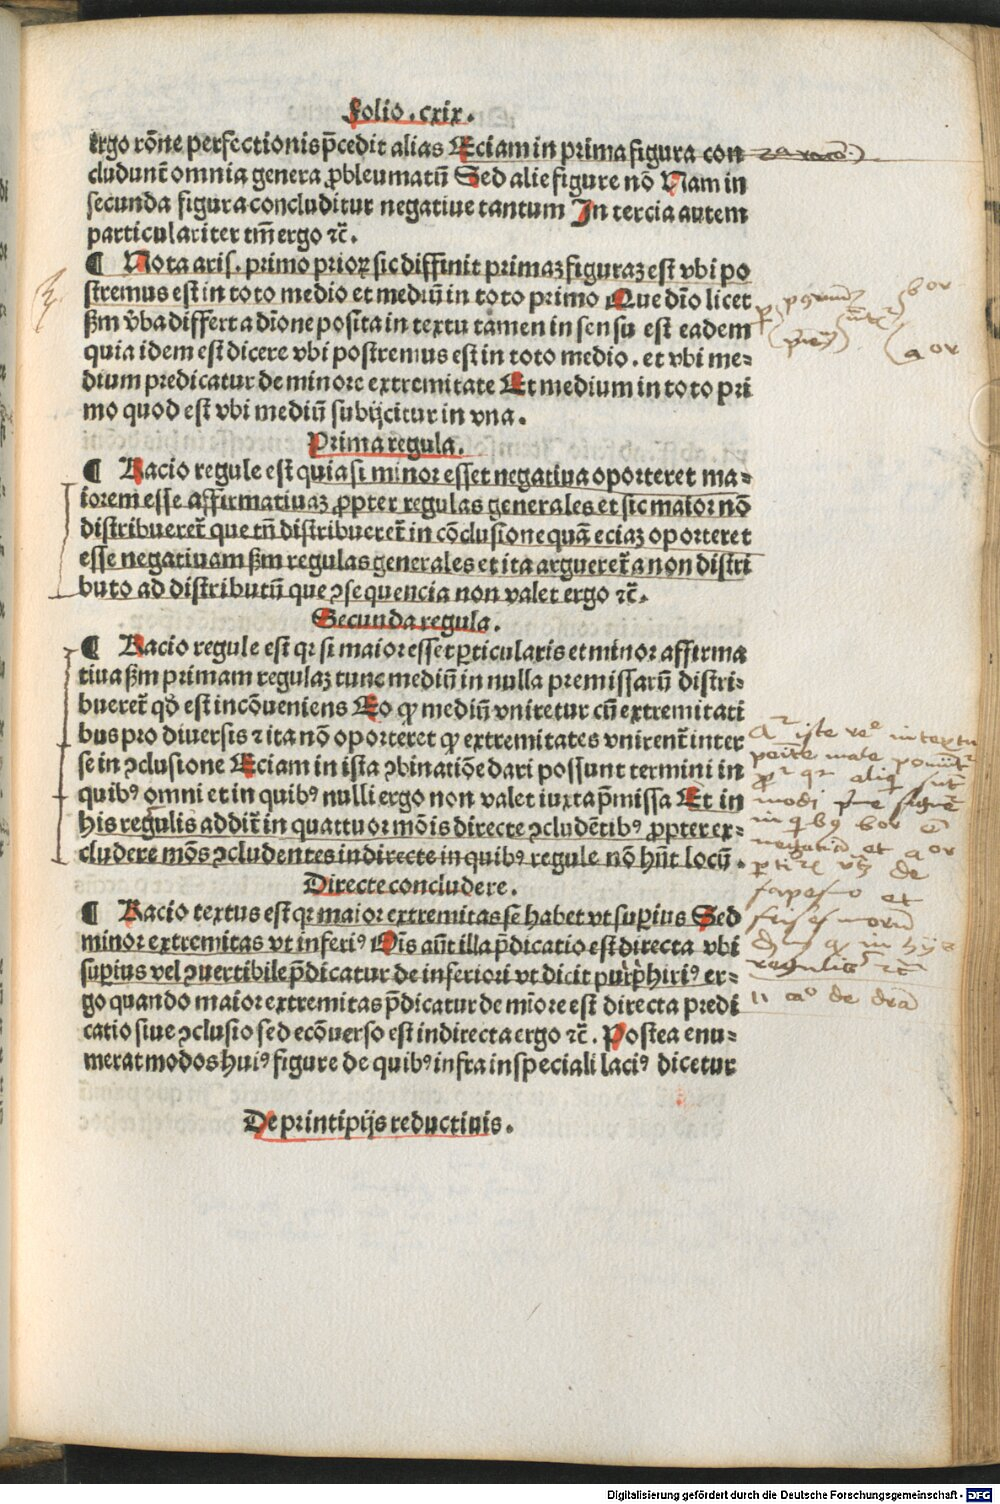 Folio . cxix .
ergo rōne perfectionis p̄cedit alias Eciam in prima figura con
cludunt̄ omnia genera ꝓbleumatū Sed alie figure nō Nam in
secunda figura concluditur negatiue tantum In tercia autem
particulariter tm̄ ergo ⁊c̄ .
¶ Nota aris . primo prioꝝ sic diffinit primaꝫ figuraꝫ est vbi po
stremus est in toto medio et mediū in toto primo Que dīo licet
ßm v̄ba differt a dīone posita in textu tamen in sensu est eadem
quia idem est dicere vbi postremus est in toto medio . et vbi me⸗
dium predicatur de minore extremitate Et medium in toto pri
mo quod est vbi mediū subijcitur in vna .
Prima regula .
¶ Racio regule est quia si minor esset negatiua oporteret ma⸗
iorem esse affirmatiuaꝫ ꝓpter regulas generales et sic maior nō
distribueret̄ que tn̄ distribueret̄ in cōclusione quā eciaꝫ oporteret
esse negatiuam ßm regulas generales et ita argueret̄ a non distri
buto ad distributū que ꝯsequencia non valet ergo ⁊c̄ .
Secunda regula .
¶ Racio regule est qꝛ si maior esset ꝑticularis et minor affirma
tiua ßm primam regulaꝫ tunc mediū in nulla premissarū distri⸗
bueret̄ qd̄ est incōueniens Eo ꝙ mediū vniretur cū extremitati
bus pro diuersis ⁊ ita nō oporteret ꝙ extremitates vnirent̄ inter
se in ꝯclusione Eciam in ista ꝯbinatiōe dari possunt termini in
quibꝰ omni et in quibꝰ nulli ergo non valet iuxta p̄missa Et in
his regulis addit̄ in quattuor mōis directe ꝯcludētibꝰ ꝓpter ex⸗
cludere mōs ꝯcludentes indirecte in quibꝰ regule nō hn̄t locū .
Directe concludere .
¶ Racio textus est qꝛ maior extremitas se habet vt suꝑius Sed
minor extremitas vt inferiꝰ Oīs aūt illa p̄dicatio est directa vbi
suꝑius vel ꝯuertibile p̄dicatur de inferiori vt dicit purphiriꝰ er⸗
go quando maior extremitas p̄dicatur de mīore est directa predi
catio siue ꝯclusio sed ecōuerso est indirecta ergo ⁊c̄ . Postea enu⸗
merat modos huiꝰ figure de quibꝰ infra in speciali laciꝰ dicetur
De printipijs reductiuis .
bor
aor
in quibꝰ bor ē
negatiā et aor
de
fapesmo et
frisesmorū
regulis ⁊c̄
Digitalisierung gefördert durch die Deutsche Forschungsgemeinschaft - DFG